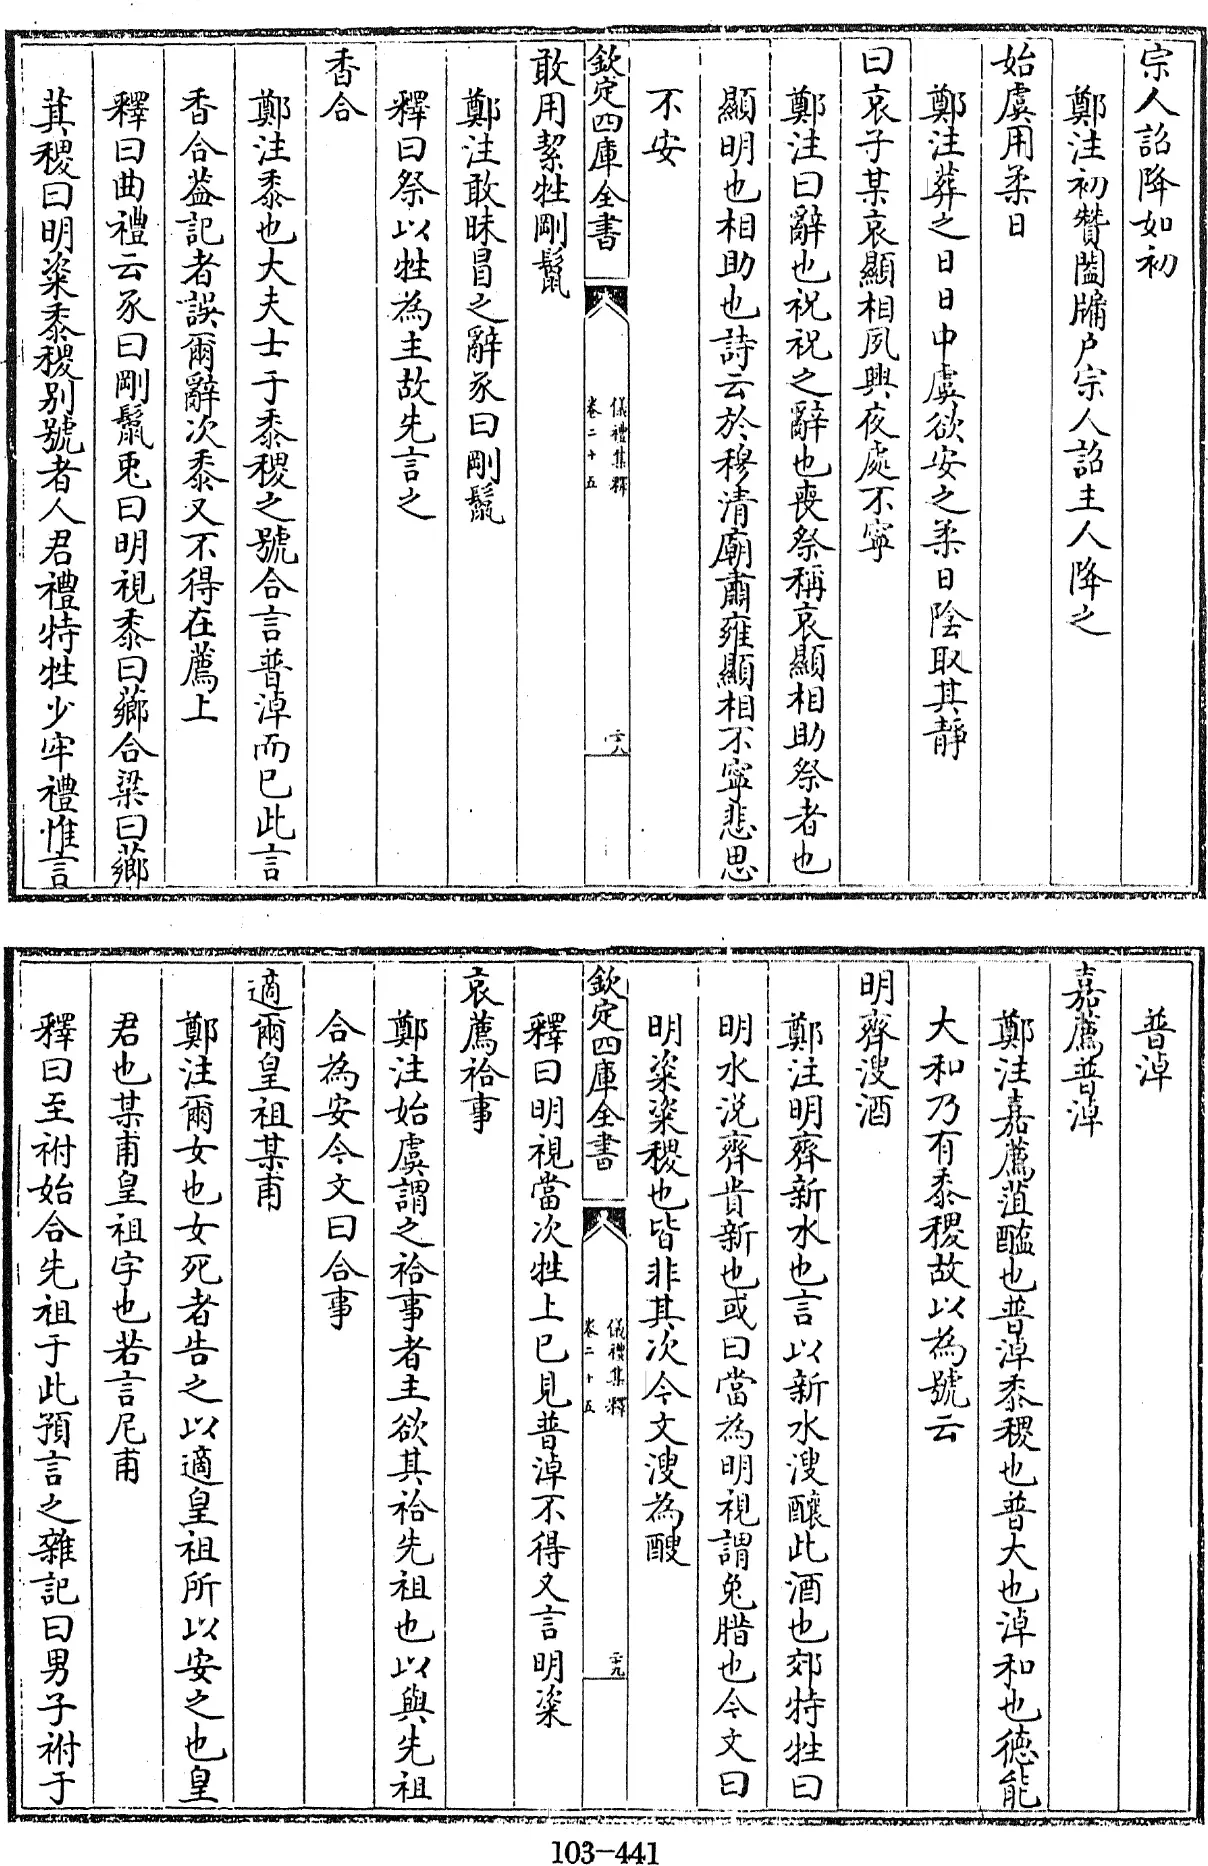 宗人詔降如初
鄭注初贊闔牖户宗人詔主人降之
始虞用柔日
鄭注葬之日日中虞欲安之柔日陰取其靜
曰哀子某哀顯相夙興夜處不寧
鄭注曰辭也祝祝之辭也喪祭稱哀顯相助祭者也
顯明也相助也詩云於穆清廟肅雍顯相不寧悲思
不安
欽定四庫全書
儀禮集釋
卷二十五
二八
敢用絜牲剛鬛
鄭注敢昧冒之辭豕曰剛鬛
釋曰祭以牲為主故先言之
香合
鄭注黍也大夫士于黍稷之號合言普淖而已此言
香合葢記者誤爾辭次黍又不得在薦上
釋曰曲禮云豕曰剛鬛兎曰明視黍曰薌合梁曰薌
萁稷曰明粢黍稷别號者人君禮特牲少牢禮惟言
普淖
嘉薦普淖
鄭注嘉薦菹醢也普淖黍稷也普大也淖和也徳能
大和乃有黍稷故以為號云
明齊溲酒
鄭注明齊新水也言以新水溲釀此酒也郊特牲曰
明水涚齊貴新也或曰當為明視謂兔腊也今文曰
明粢粢稷也皆非其次今文溲為醙
欽定四庫全書
儀禮集釋
卷二十五
二九
釋曰明視當次牲上巳見普淖不得又言明粢
哀薦祫事
鄭注始虞謂之祫事者主欲其祫先祖也以與先祖
合為安今文曰合事
適爾皇祖某甫
鄭注爾女也女死者告之以適皇祖所以安之也皇
君也某甫皇祖字也若言尼甫
釋曰至祔始合先祖于此預言之雜記曰男子祔于
103-441